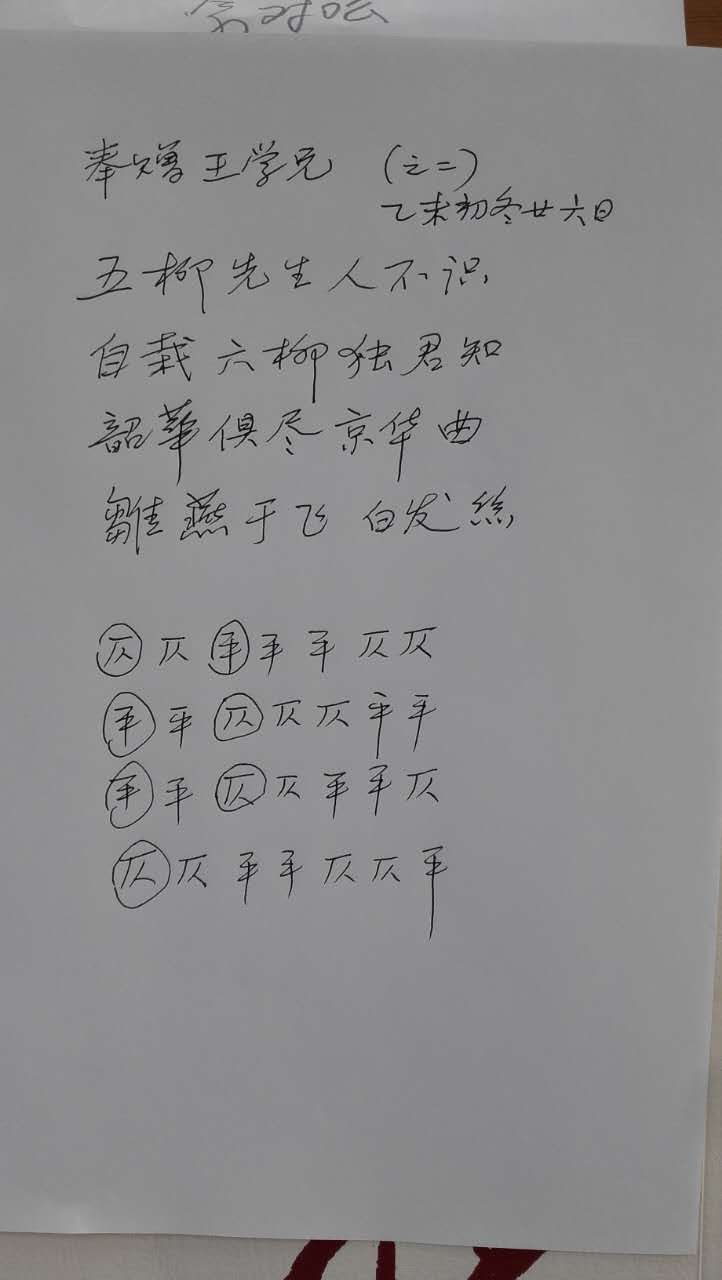 奉赠王学兄 (之二)
乙未初冬廿六日
五柳先生人不识
自栽六柳独君知
韶華俱尽京华曲
雛燕于飞白发絲
仄仄平平平仄仄
平平仄仄仄平平
平平仄仄平平仄
仄仄平平仄仄平